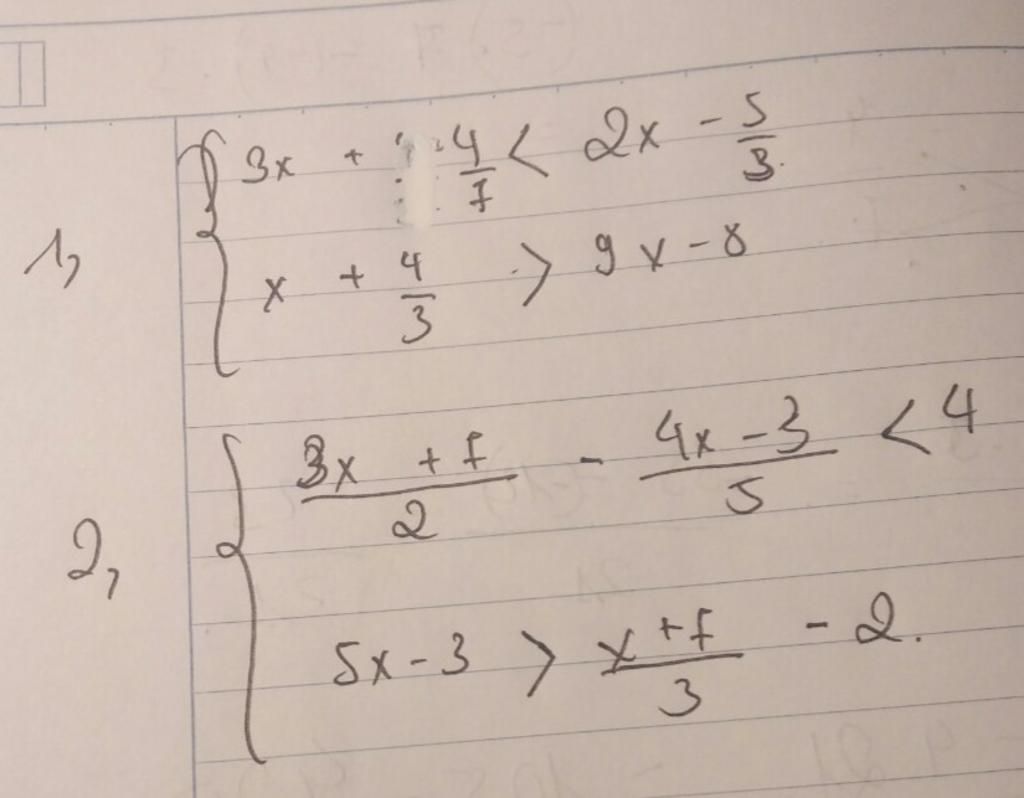 1, { 3x + 4/7 < 2x - 5/3
x + 4/3 > 9x - 8
2, { (3x + 7)/2 - (4x - 3)/5 < 4
5x - 3 > (x + 7)/3 - 2.